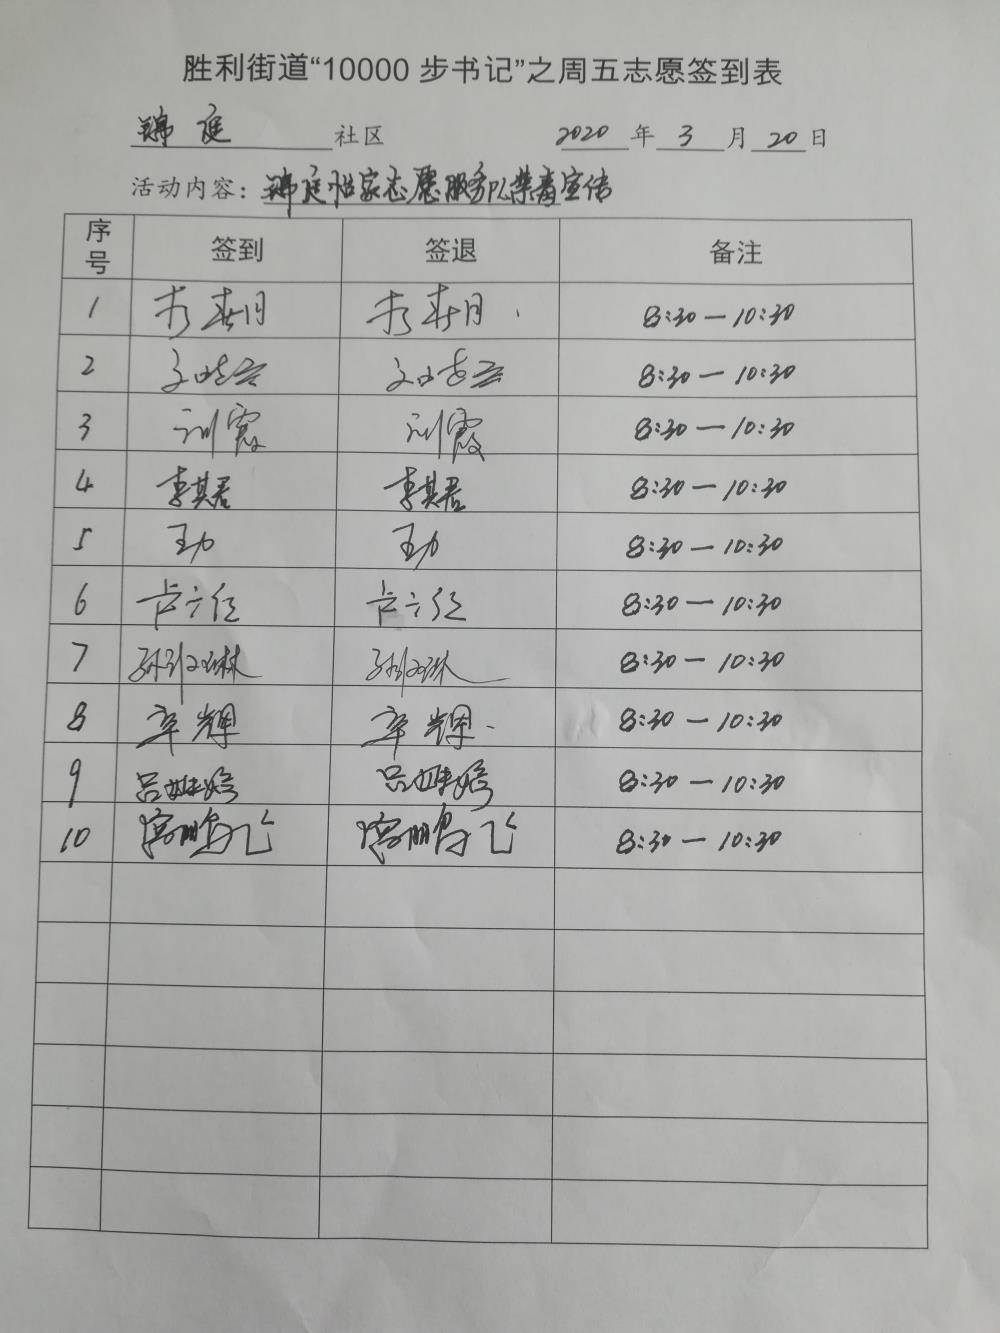 胜利街道“10000 步书记”之周五志愿签到表
锦庭 社区 2020 年 3 月 20 日
活动内容：锦庭怡家志愿服务队禁毒宣传
序号 签到 签退 备注
1 8:30—10:30
2 8:30—10:30
3 8:30—10:30
4 李其君 李其君 8:30—10:30
5 王力 王力 8:30—10:30
6 8:30—10:30
7 8:30—10:30
8 辛辉 辛辉 8:30—10:30
9 吕姝婷 吕姝婷 8:30—10:30
10 鹏飞 鹏飞 8:30—10:30